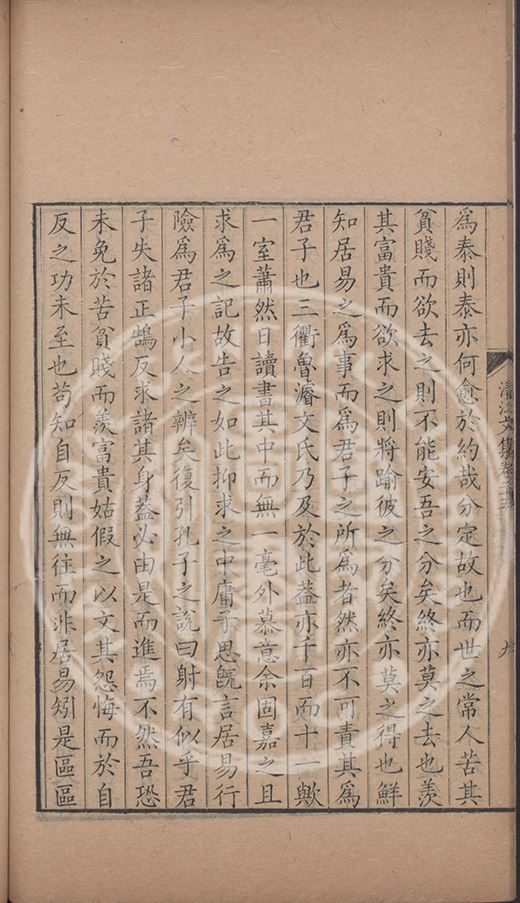 為泰則泰亦何愈於約哉分定故也而世之常人苦其
貧賤而欲去之則不能安吾之分矣終亦莫之去也羨
其富貴而欲求之則將踰彼之分矣終亦莫之得也鮮
知居易之為事而為君子之所為者然亦不可責其為
君子也三衢魯濬文氏乃及於此葢亦千百而十一歟
一室蕭然日讀書其中而無一毫外慕意余固嘉之且
求為之記故告之如此抑求之中庸子思旣言居易行
險為君子小人之辨矣復引孔子之說曰射有似乎君
子失諸正鵠反求諸其身葢必由是而進焉不然吾恐
未免於苦貧賤而羨富貴姑假之以文其怨悔而於自
反之功未至也苟知自反則無往而非居易矧是區區
文集卷之
九